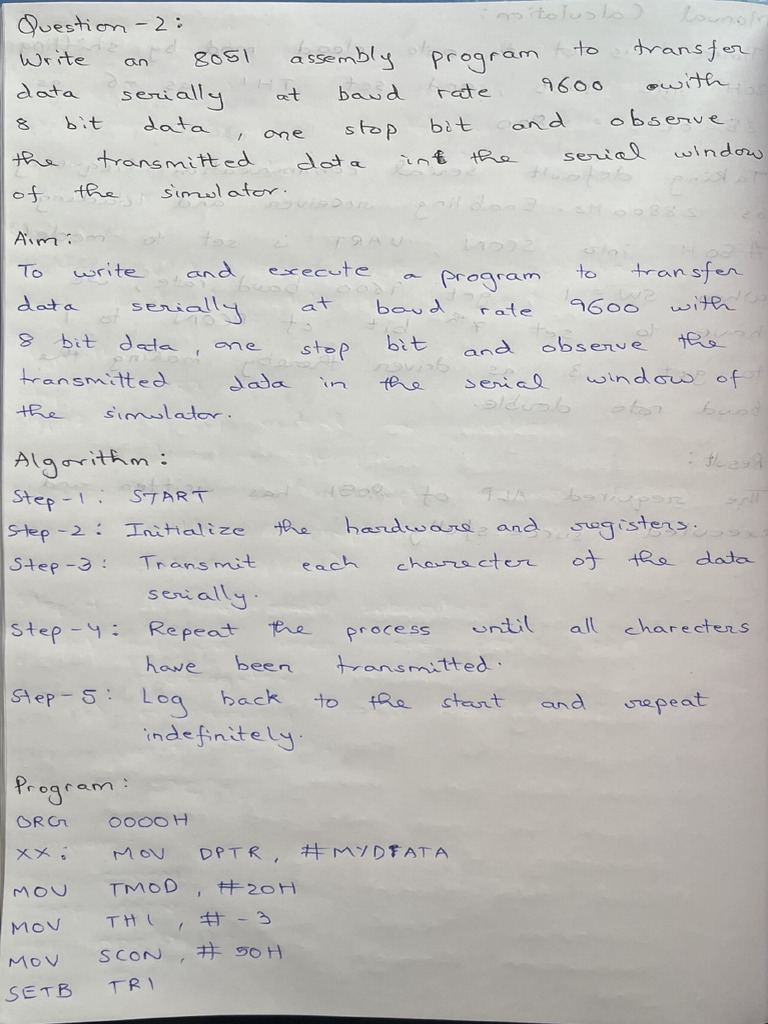 Question-2:
Write an 8051 assembly program to transfer
data serially at baud rate 9600 with
8 bit data, one stop bit and observe
the transmitted data in the serial window
of the simulator.
Aim:
To write and execute a program to transfer
data serially at baud rate 9600 with
8 bit data, one stop bit and observe the
transmitted data in the serial window of
the simulator.
Algorithm:
Step-1: START
Step-2: Initialize the hardware and registers.
Step-3: Transmit each charecter of the data
serially.
Step-4: Repeat the process until all charecters
have been transmitted.
Step-5: Log back to the start and repeat
indefinitely.
Program:
ORG 0000H
XX: MOV DPTR, #MYDATA
MOV TMOD, #20H
MOV TH1, #-3
MOV SCON, #50H
SETB TR1